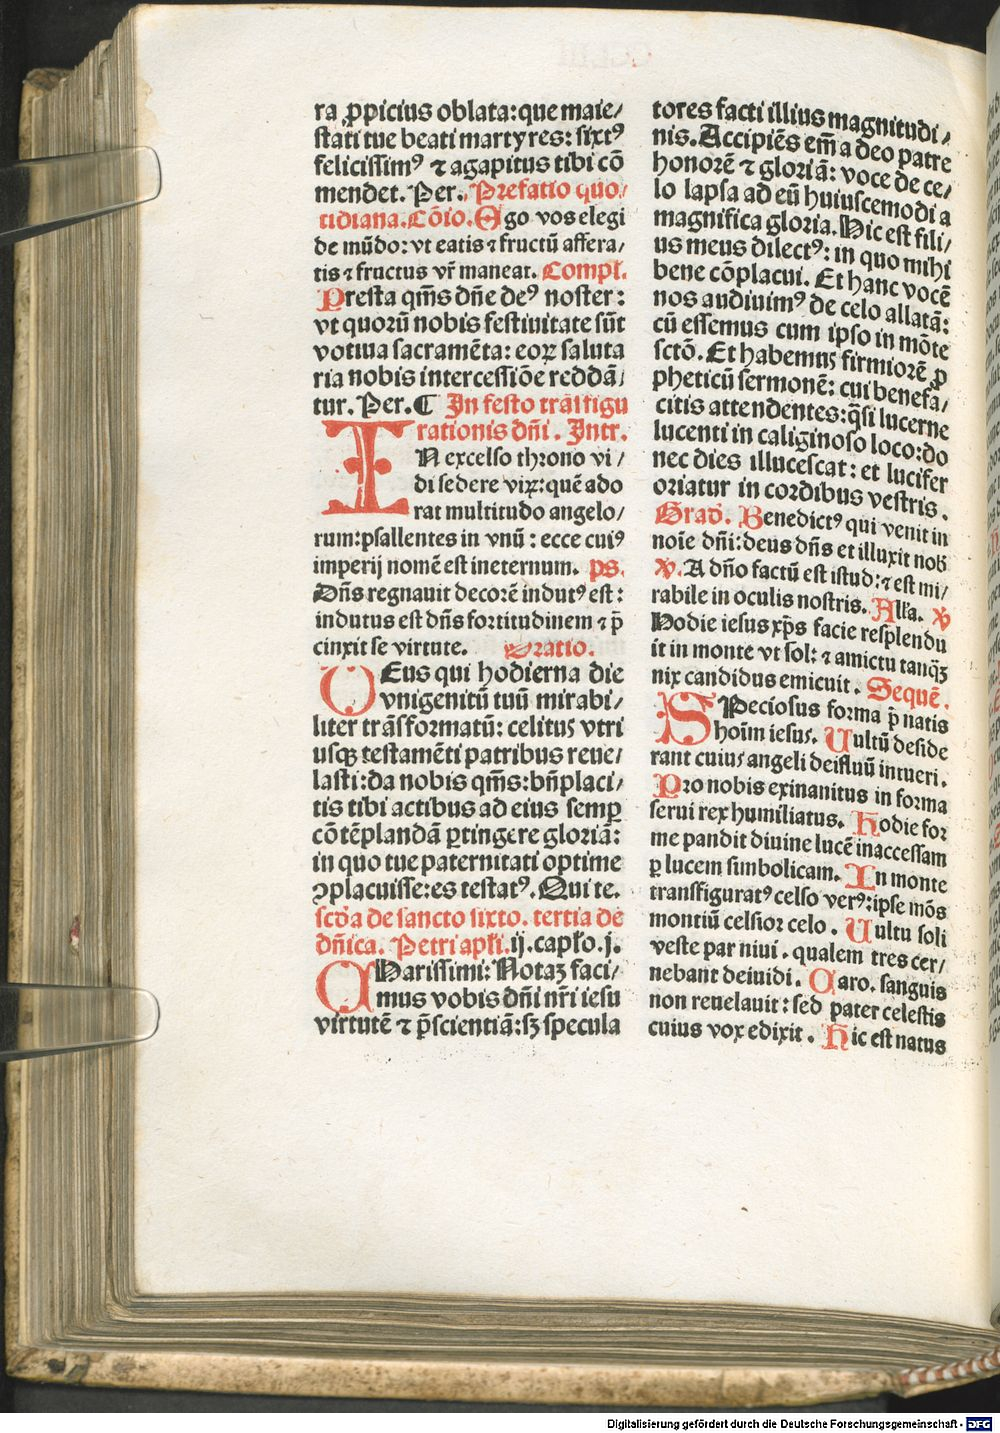 ra ꝓpicius oblata: que maie/
stati tue beati martyres: sixtꝰ
felicissimꝰ ⁊ agapitus tibi cō
mendet. Per. Prefatio quo/
tidiana. Cōio. Ego vos elegi
de mūdo: vt eatis ⁊ fructū affera/
tis ⁊ fructus vr̄ maneat. Compl.
Presta qm̄s dn̄e deꝰ noster:
vt quorū nobis festiuitate sūt
votiua sacramēta: eoꝝ saluta
ria nobis intercessiōe reddā/
tur. Per. ¶ In festo trāsfigu
rationis dn̄i. Intr.
IN excelso throno vi/
di sedere viꝝ: quē ado
rat multitudo angelo/
rum: psallentes in vnū: ecce cuiꝰ
imperij nomē est ineternum. ps.
Dn̄s regnauit decorē indutꝰ est:
indutus est dn̄s fortitudinem ⁊ p̄
cinxit se virtute. Oratio.
DEus qui hodierna die
vnigenitū tuū mirabi/
liter trāsformatū: celitus vtri
usqꝫ testamēti patribus reue/
lasti: da nobis qm̄s: bn̄placi/
tis tibi actibus ad eius semꝑ
cōtēplandā ꝑtingere gloriā:
in quo tue paternitati optime
ꝯplacuisse: es testatꝰ. Qui te.
scd̄a de sancto sixto. tertia de
dn̄ica. Petri apl̄i. ij. caplo. j.
CHarissimi: Notaꝫ faci/
mus vobis dn̄i nr̄i iesu
virtutē ⁊ p̄scientiā: sꝫ specula
tores facti illius magnitudi/
nis. Accipiēs em̄ a deo patre
honorē ⁊ gloriā: voce de ce/
lo lapsa ad eū huiuscemodi a
magnifica gloria. Hic est fili/
us meus dilectꝰ: in quo mihi
bene cōplacui. Et hanc vocē
nos audiuimꝰ de celo allatā:
cū essemus cum ipso in mōte
sctō. Et habemus firmiorē ꝓ
pheticū sermonē: cui benefa/
citis attendentes: q̄si lucerne
lucenti in caliginoso loco: do
nec dies illucescat: et lucifer
oriatur in cordibus vestris.
Grad. Benedictꝰ qui venit in
noīe dn̄i: deus dn̄s et illuxit nob̄
℣. A dn̄o factū est istud: ⁊ est mi/
rabile in oculis nostris. Alla. ℣
Hodie iesus xp̄s facie resplendu
it in monte vt sol: ⁊ amictu tanqꝫ
nix candidus emicuit. Sequē.
SPeciosus forma p̄ natis
hoīm iesus. Uultū deside
rant cuius angeli deifluū intueri.
Pro nobis exinanitus in forma
serui rex humiliatus. Hodie for
me pandit diuine lucē inaccessam
ꝑ lucem simbolicam. In monte
transfiguratꝰ celso verꝰ: ipse mōs
montiū celsior celo. Uultu soli
veste par niui. qualem tres cer/
nebant deiuidi. Caro. sanguis
non reuelauit: sed pater celestis
cuius vox edixit. Hic est natus
Digitalisierung gefördert durch die Deutsche Forschungsgemeinschaft - DFG